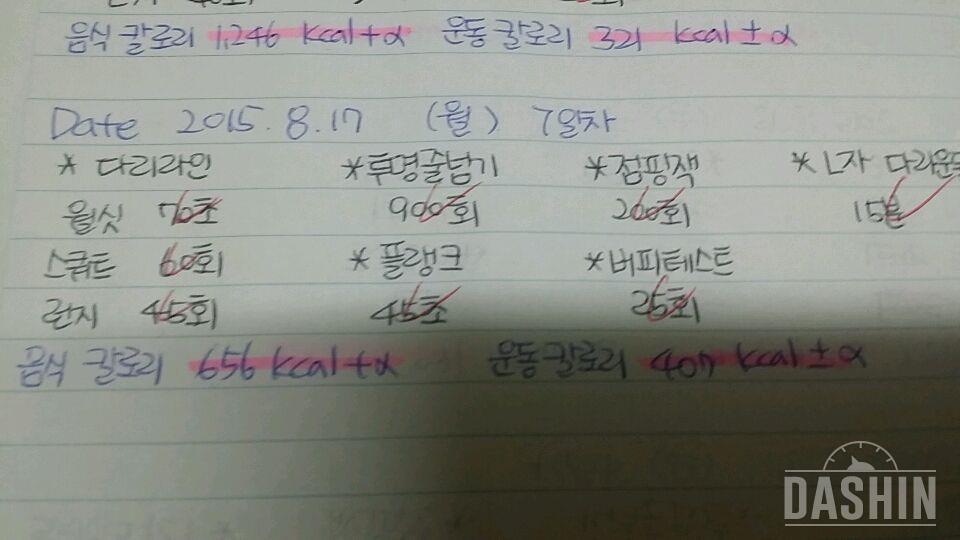 음식 칼로리 1,246 kcal+α 운동 칼로리 321 kcal ± α
Date 2015. 8. 17 (월) 7일차
* 다리라인 *투명줄넘기 *점핑잭 * L자 다리운동
월싯 70초 900회 200회 15분
스쿼트 60회 *플랭크 *버피테스트
런지 45회 45초 25회
음식 칼로리 656 kcal+α 운동칼로리 407 kcal ± α
DASHIN